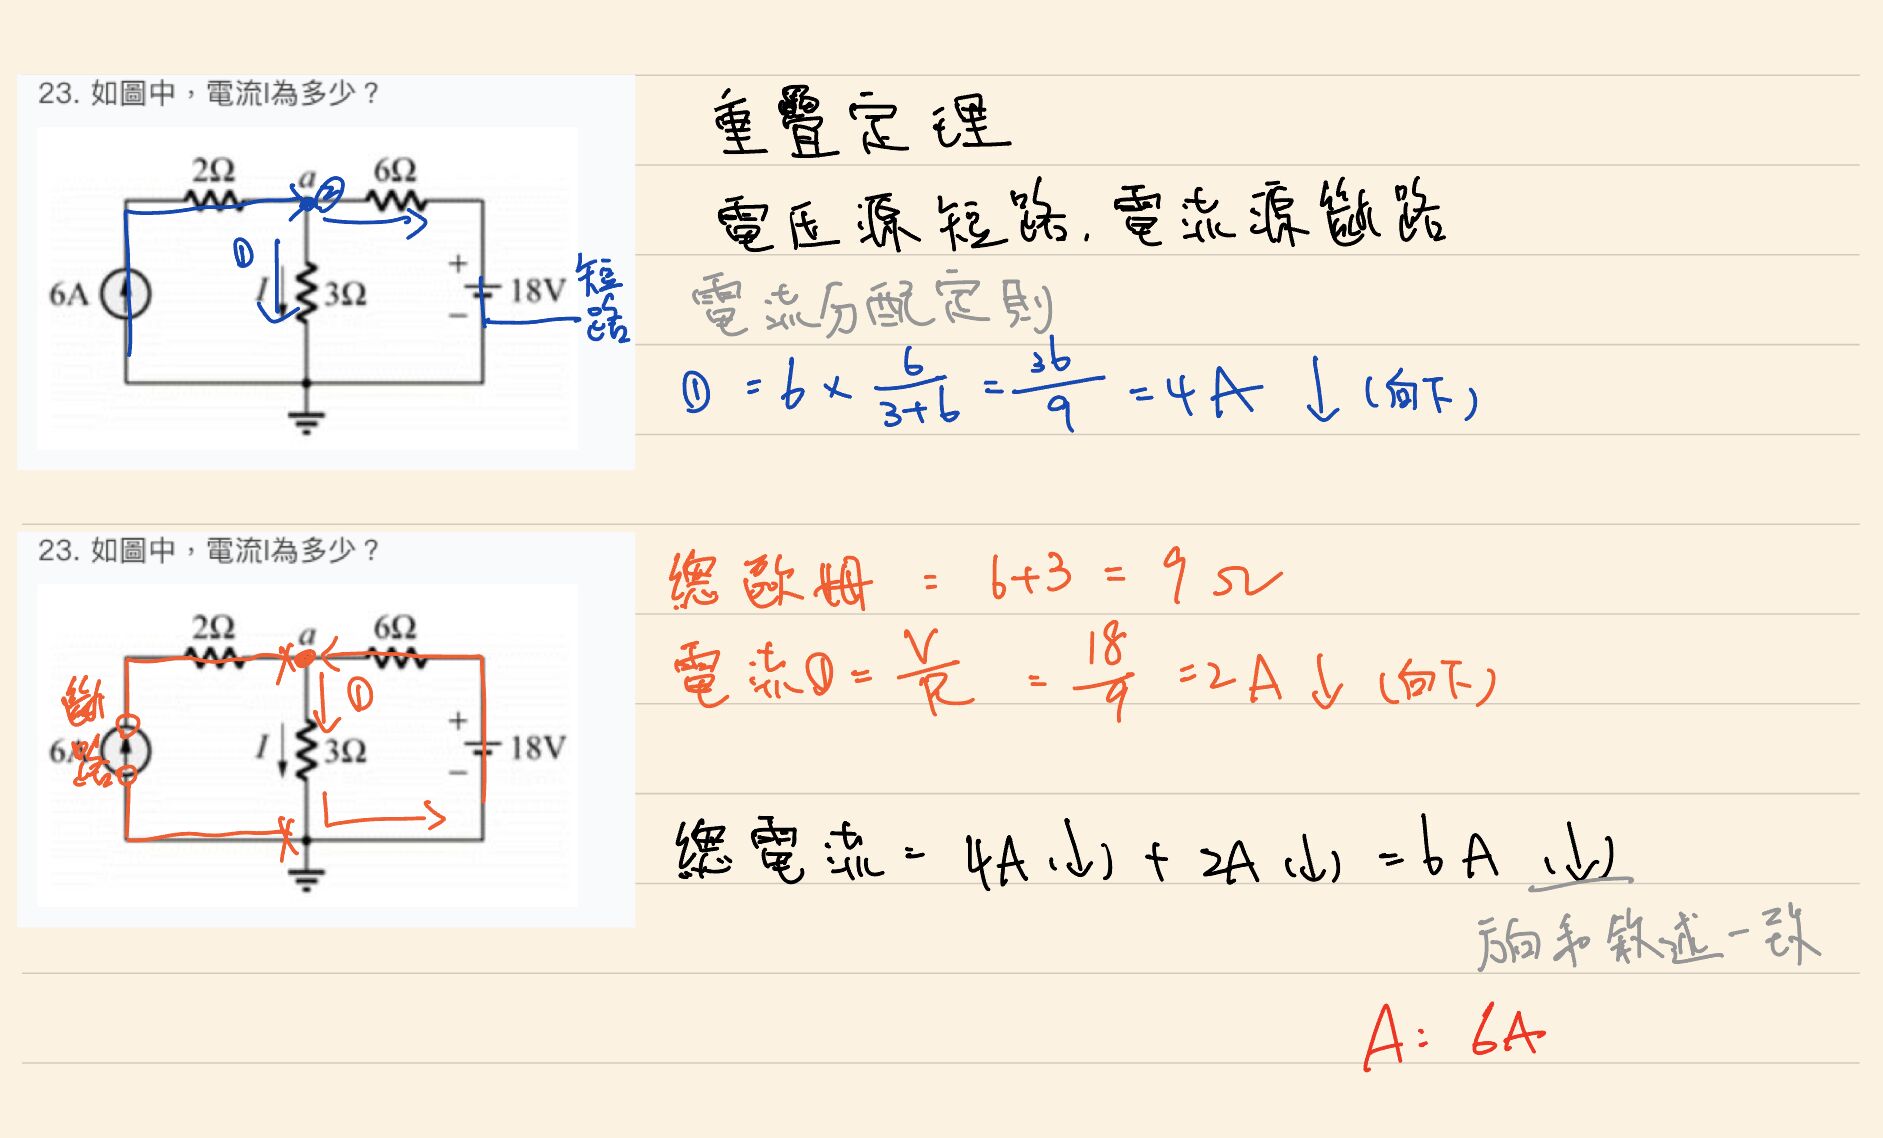 23. 如圖中，電流I為多少？
2Ω
a
②
6Ω
①
6A
I
3Ω
+
18V
−
短路
重疊定理
電压源短路，電流源斷路
電流分配定則
① = 6 × 6/(3+6) = 36/9 = 4A ↓ (向下)
23. 如圖中，電流I為多少？
2Ω
a
6Ω
斷路
①
6A
I
3Ω
+
18V
−
總歐姆 = 6+3 = 9Ω
電流① = V/R = 18/9 = 2A ↓ (向下)
總電流 = 4A (↓) + 2A (↓) = 6A (↓)
方向和敘述一致
A: 6A